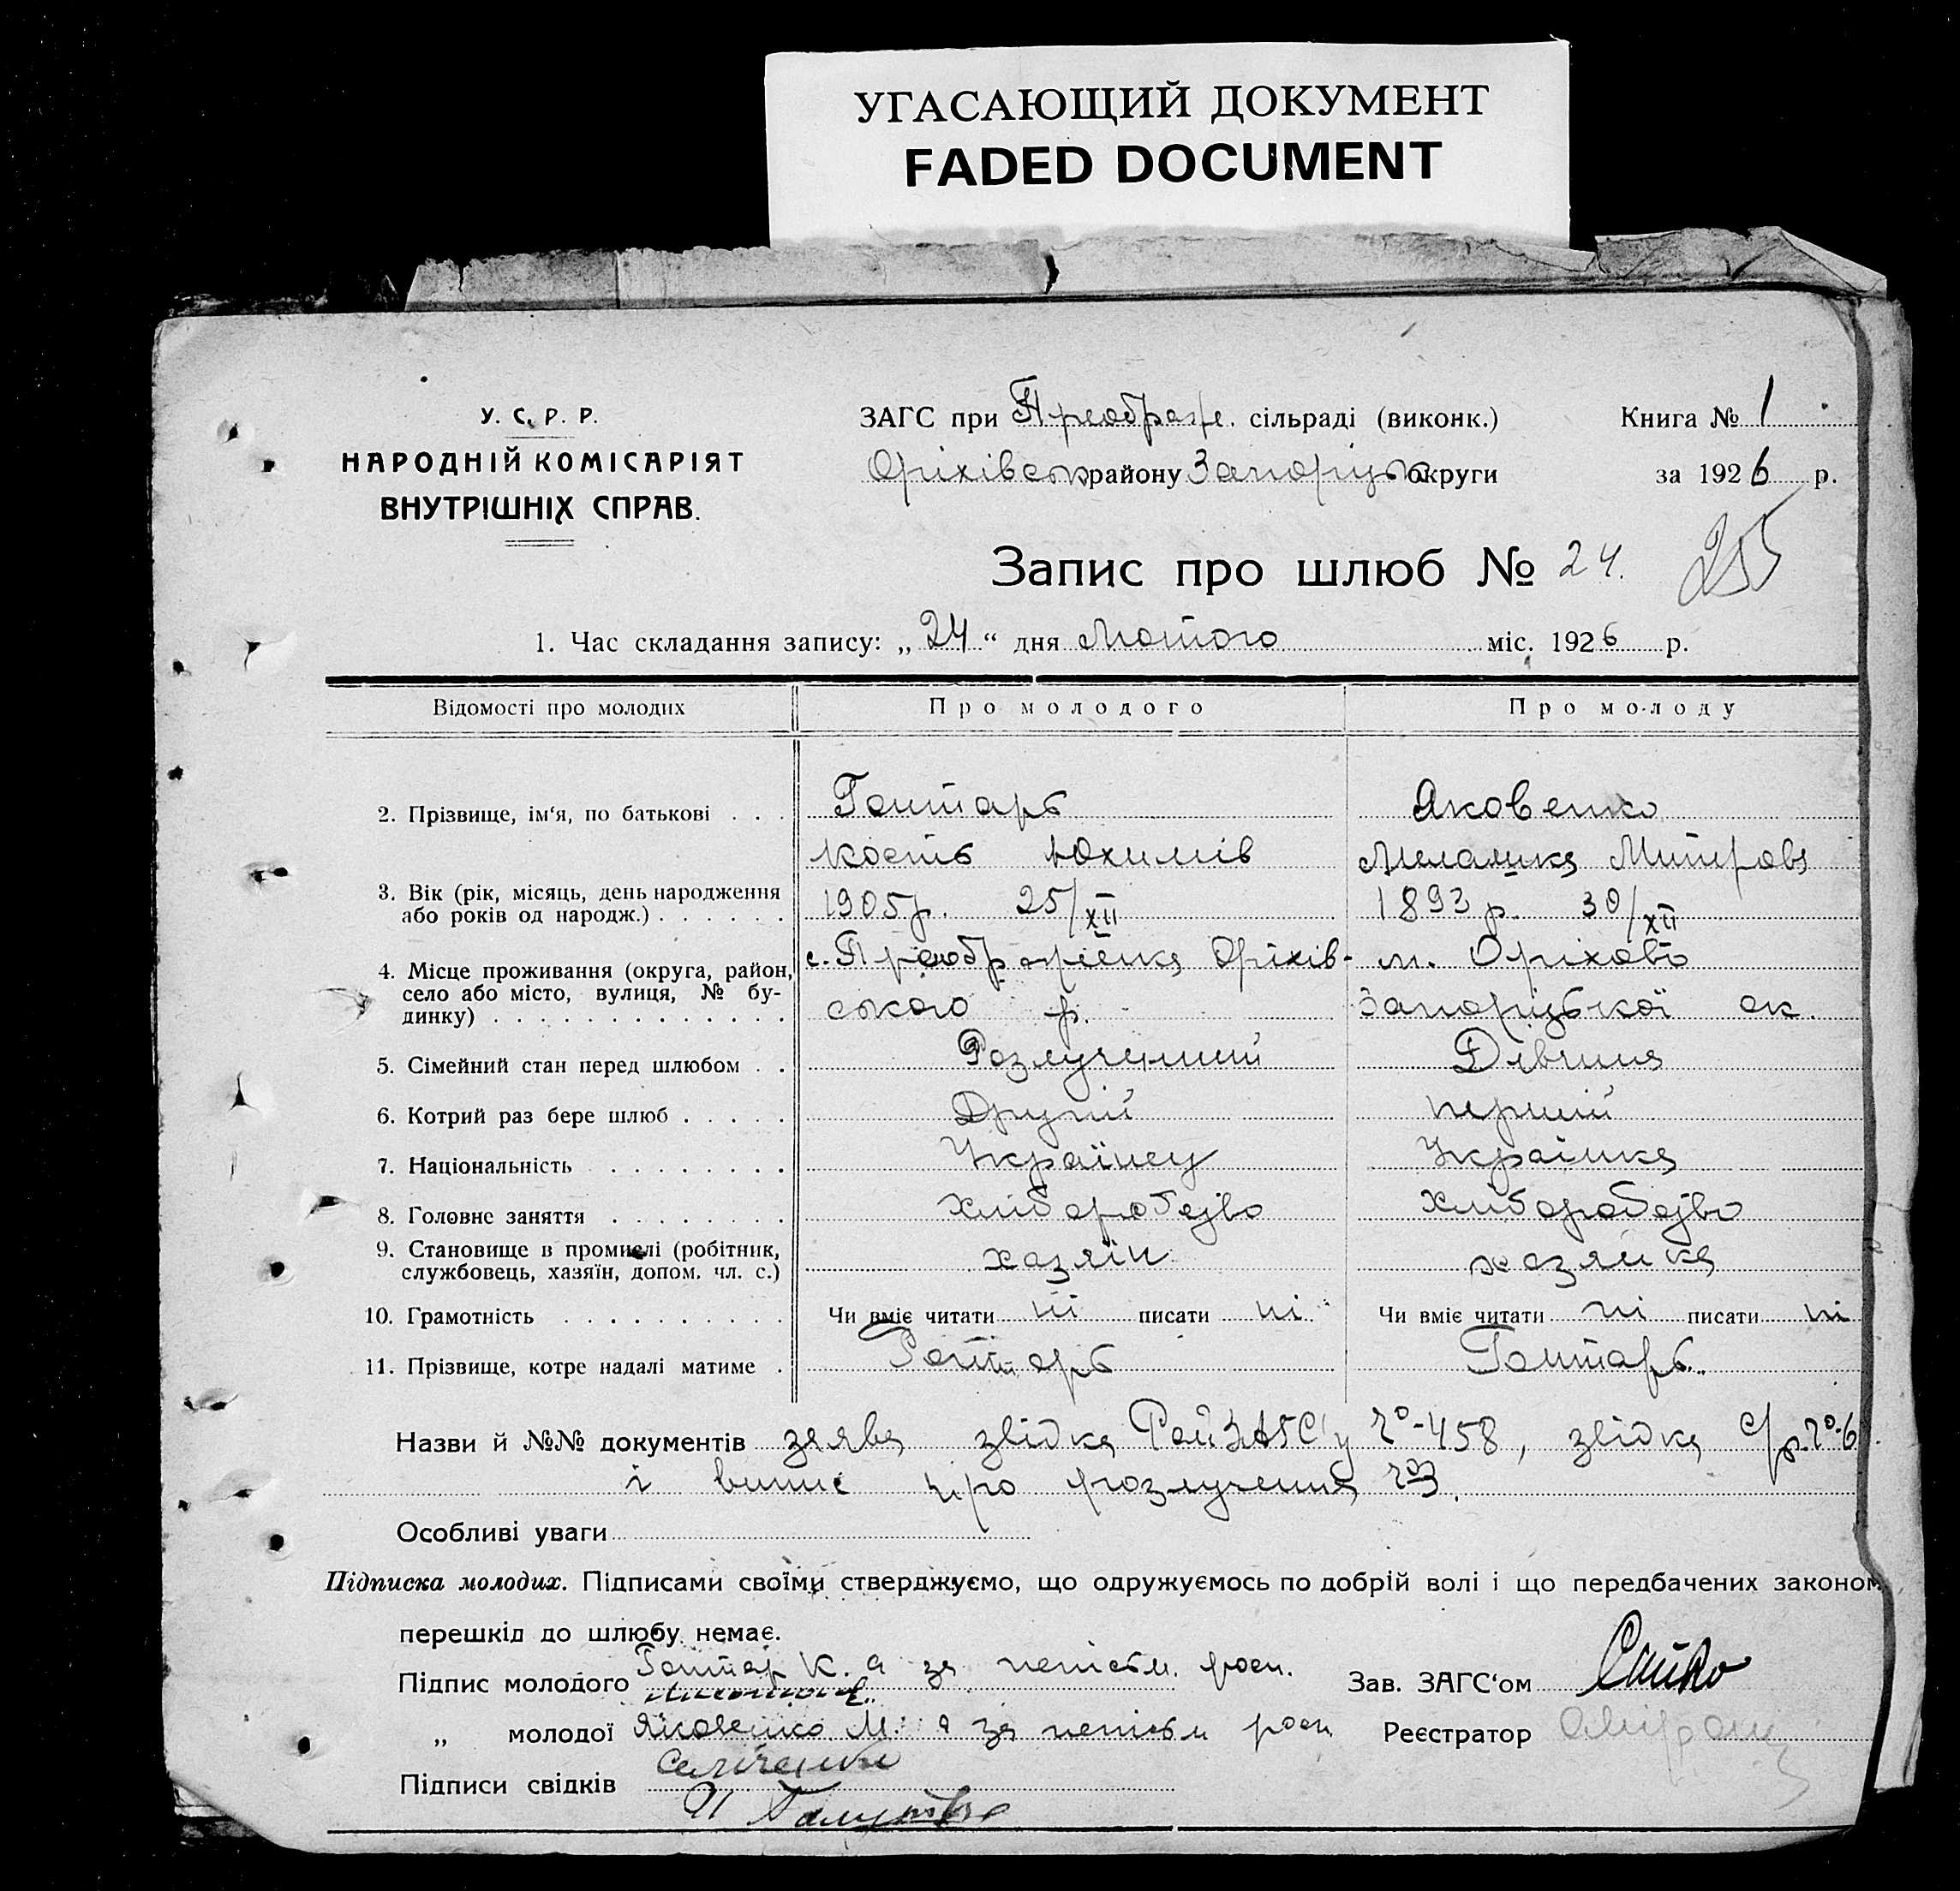 УГАСАЮЩИЙ ДОКУМЕНТ
FADED DOCUMENT
У. С. Р. Р.
НАРОДНІЙ КОМІСАРІЯТ
ВНУТРІШНІХ СПРАВ.
ЗАГС при Преображ. сільраді (виконк.)
Оріхівськ району Запоріцьк округи
Книга № 1
за 1926 р.
Запис про шлюб № 24.
255
1. Час складання запису: „24“ дня Лютого міс. 1926 р.
Відомості про молодих Про молодого Про молоду
2. Прізвище, ім'я, по батькові . . . Гонтарь Яковенко
Кость Юхимів Меланка Митрова
3. Вік (рік, місяць, день народження або років од народж.) . . . . . . 1905 р. 25/XII 1893 р. 30/XII
4. Місце проживання (округа, район, село або місто, вулиця, № будинку) . . . с. Преображенка Оріхів- м. Оріхово
ського р. Запоріцької ок.
5. Сімейний стан перед шлюбом . . Розлучений Дівчина
6. Котрий раз бере шлюб . . . . . Другий перший
7. Національність . . . . . . . . Українец Українка
8. Головне заняття . . . . . . . . Хлібороб Хлібороб
9. Становище в промислі (робітник, службовець, хазяїн, допом. чл. с.) хазяїн хазяйка
10. Грамотність . . . . . . . . . . Чи вміє читати ні писати ні Чи вміє читати ні писати ні
11. Прізвище, котре надалі матиме . Гонтарь Гонтарь.
Назви й №№ документів заява звідка РайЗАГС'у №-458, звідка с/р. №-6
і випис про розлучення №3.
Особливі уваги
Підписка молодих. Підписами своїми стверджуємо, що одружуємось по добрій волі і що передбачених законом
перешкід до шлюбу немає.
Підпис молодого Гонтар К. а за непісьм. росп. Зав. ЗАГС'ом
„ молодої Яковенко М. а за непісьм росп Реєстратор
Підписи свідків